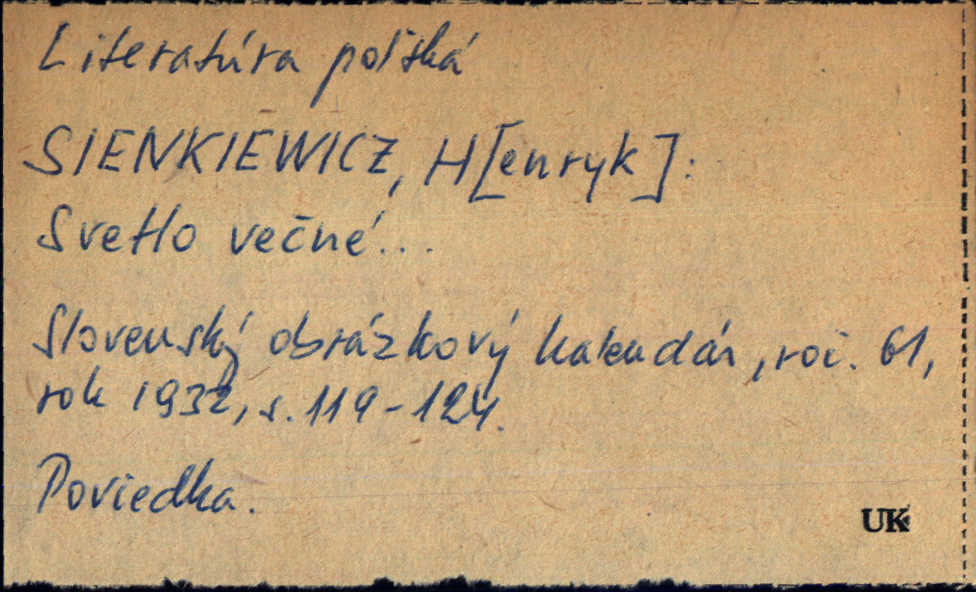 Literatúra poľská
SIENKIEWICZ, H[enryk]:
Svetlo večné...
Slovenský obrázkový kalendár, roč. 61,
rok 1932, s. 119-124.
Poviedka.
UK